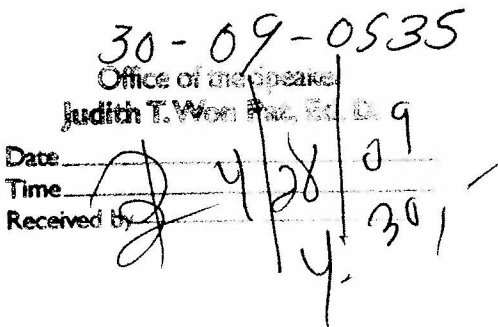 30-09-0535
Office of the Speaker
Judith T. Won Pat, Ed. D.
Date 4/28/09
Time 4:30
Received by